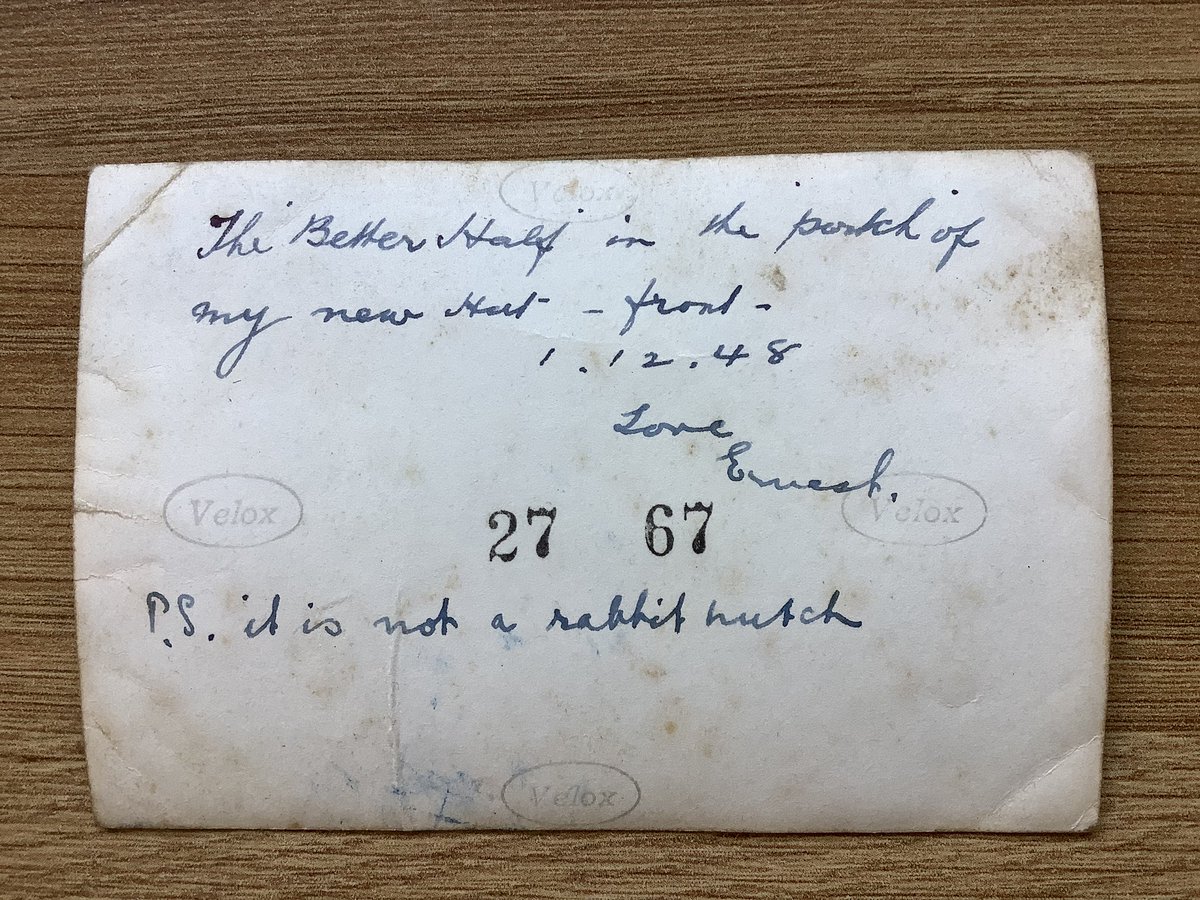 Velox
The 'Better Half' in the portch of
my new Hut - front -
1.12.48
Love
Ernest.
Velox Velox
27 67
P.S. it is not a rabbit hutch
Velox